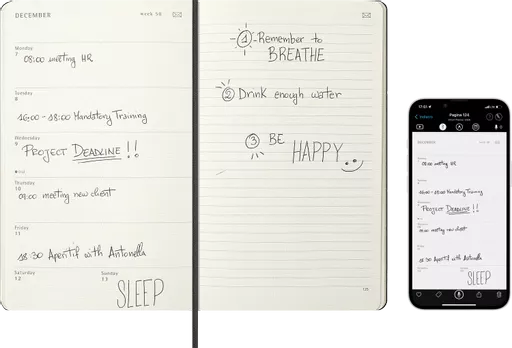 DECEMBER
week 50
Monday
7
08:00 meeting HR
Tuesday
8
16:00 - 18:00 Mandatory Training
Wednesday
9
PROJECT DEADLINE !!
Thursday
10
09:00 meeting new client
Friday
11
18:30 Aperitif with Antonella
Saturday
12
Sunday
13
SLEEP
1 Remember to
BREATHE
2 Drink enough water
3 BE
HAPPY
Pagina 125
DECEMBER
08:00 meeting HR
16:00 - 18:00 Mandatory Training
PROJECT DEADLINE !!
09:00 meeting new client
18:30 Aperitif with Antonella
SLEEP